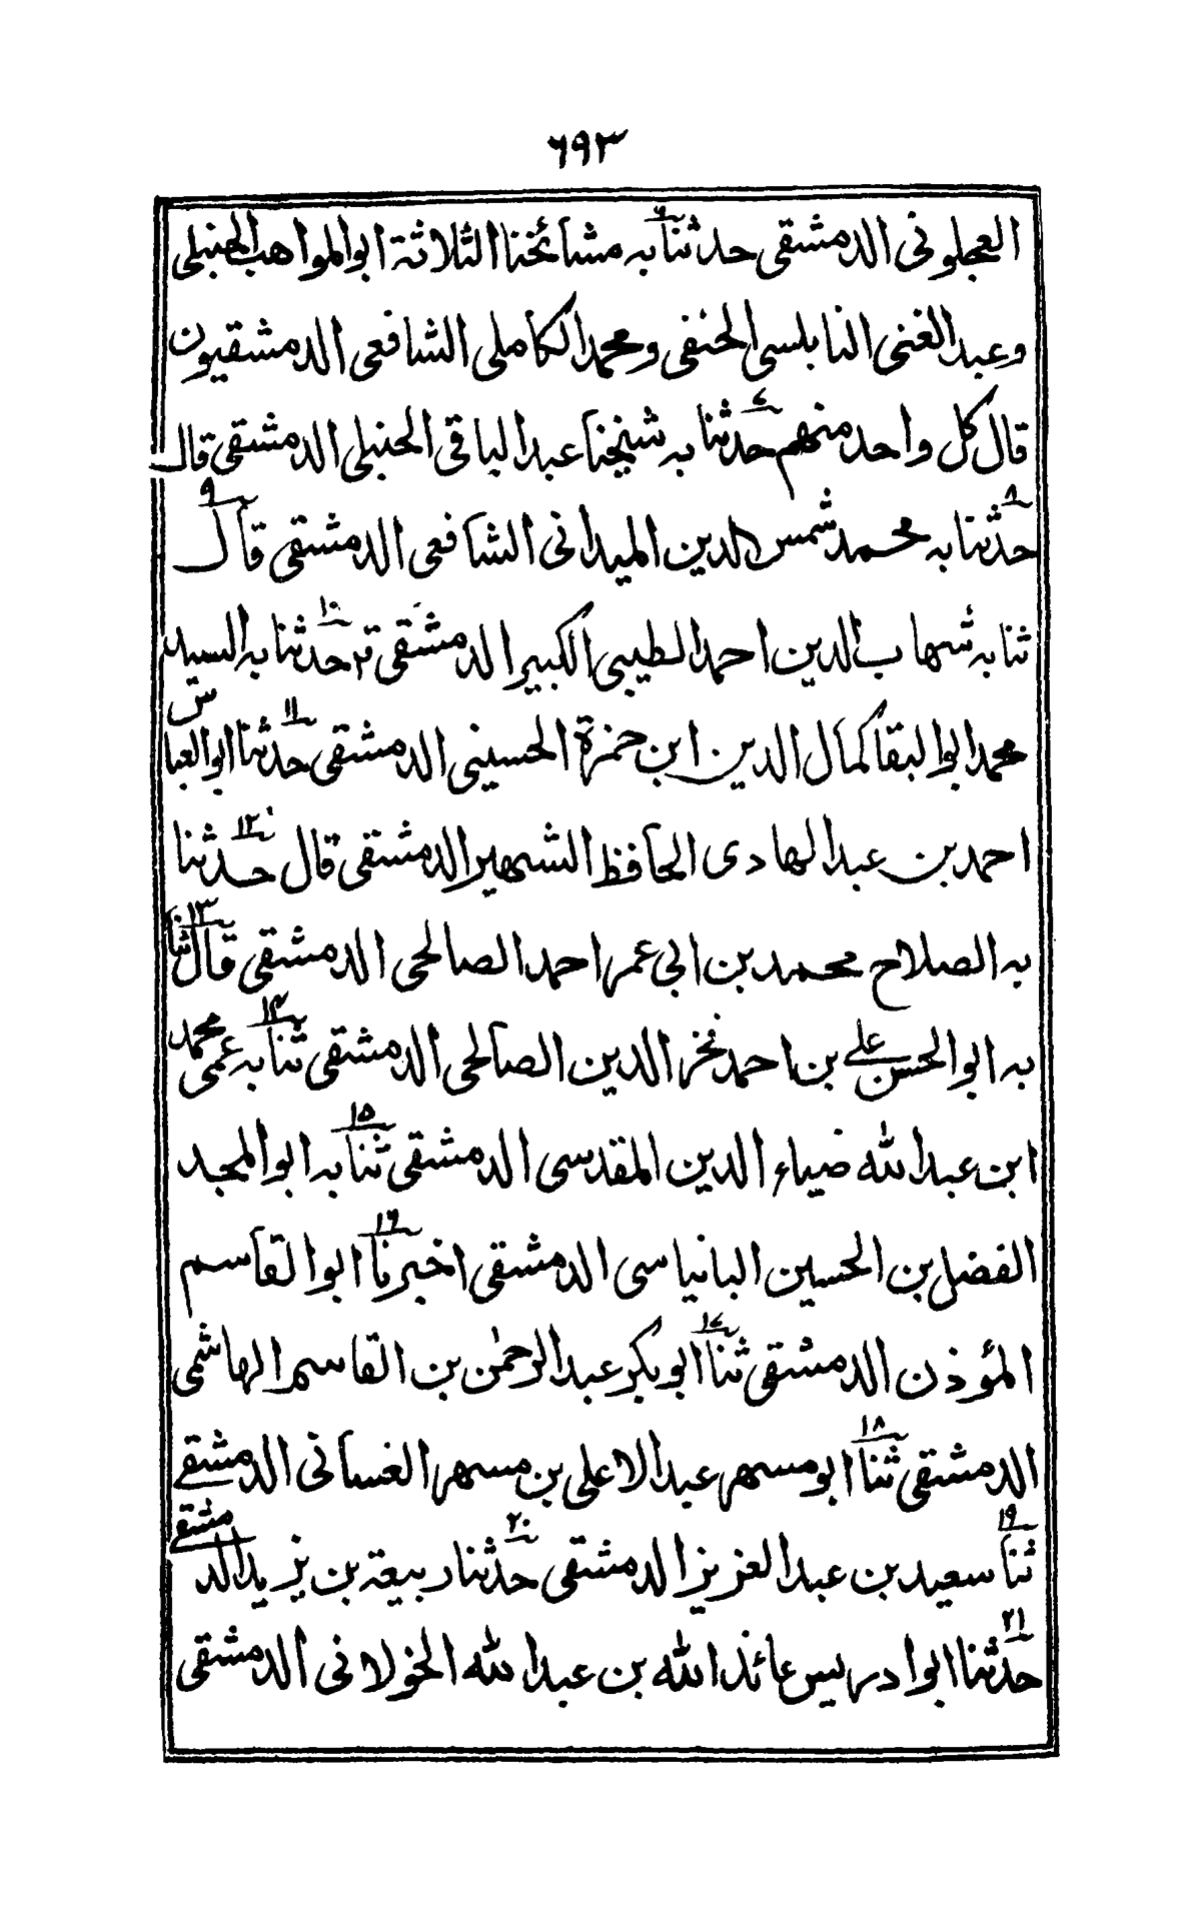 ٦٩٣
العجلونى الدمشقى حدثنا٦ به مشائخنا الثلاثة ابوالمواهب الحنبلى
وعبدالغنى النابلسى الحنفى ومحمد الكاملى الشافعى الدمشقيون
قال كل واحد منهم حدثنا٧ به شيخنا عبدالباقى الحنبلى الدمشقى قال
حدثنا٨ به محمد شمس الدين الميدانى الشافعى الدمشقى قال٩
ثنا به شهاب الدين احمد الطيبى الكبير الدمشقى حدثنا١٠ به السيد
محمد ابوالبقا كمال الدين ابن حمزة الحسينى الدمشقى حدثنا١١ ابوالعباس
احمد بن عبدالهادى الحافظ الشهير الدمشقى قال حدثنا١٢
به الصلاح محمد بن ابى عمر احمد الصالحى الدمشقى قال ثنا١٣
به ابوالحسن على بن احمد فخر الدين الصالحى الدمشقى ثنا١٤ به عمى محمد
ابن عبدالله ضياء الدين المقدسى الدمشقى ثنا١٥ به ابوالمجد
الفضل بن الحسين البانياسى الدمشقى اخبرنا١٦ ابوالقاسم
المؤذن الدمشقى ثنا١٧ ابوبكر عبدالرحمٰن بن القاسم الهاشمى
الدمشقى ثنا١٨ ابو مسهر عبدالاعلى بن مسهر الغسانى الدمشقے
ثنا١٩ سعيد بن عبدالعزيز الدمشقى حدثنا٢٠ ربيعة بن يزيد الدمشقے
حدثنا٢١ ابوادريس عائذ الله بن عبدالله الخولانى الدمشقى